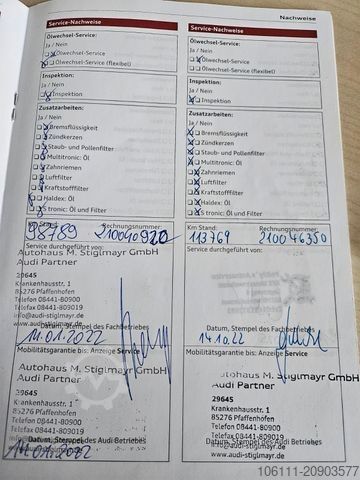 Nachweise
Service-Nachweise
Ölwechsel-Service:
Ja / Nein
Ölwechsel-Service
Ölwechsel-Service (flexibel)
Inspektion:
Ja / Nein
Inspektion
Zusatzarbeiten:
Ja / Nein
Bremsflüssigkeit
Zündkerzen
Staub- und Pollenfilter
Multitronic: Öl
Zahnriemen
Luftfilter
Kraftstofffilter
Haldex: Öl
S tronic: Öl und Filter
98789
Rechnungsnummer:
210040920
Service durchgeführt von:
Autohaus M. Stiglmayr GmbH
Audi Partner
29645
Krankenhausstr. 1
85276 Pfaffenhofen
Telefon 08441-80900
Telefax 08441-809020
info@audi-stiglmayr.de
www.audi-stiglmayr.de
Datum, Stempel des Fachbetriebes
11.01.2022
Mobilitätsgarantie bis: Anzeige Service
Autohaus M. Stiglmayr GmbH
Audi Partner
29645
Krankenhausstr. 1
85276 Pfaffenhofen
Telefon 08441-80900
Datum, Stempel des Audi Betriebes
Service-Nachweise
Ölwechsel-Service:
Ja / Nein
Ölwechsel-Service
Ölwechsel-Service (flexibel)
Inspektion:
Ja / Nein
Inspektion
Zusatzarbeiten:
Ja / Nein
Bremsflüssigkeit
Zündkerzen
Staub- und Pollenfilter
Multitronic: Öl
Zahnriemen
Luftfilter
Kraftstofffilter
Haldex: Öl
S tronic: Öl und Filter
Km Stand:
113769
Rechnungsnummer:
210046350
Service durchgeführt von:
Datum, Stempel des Fachbetriebes
14.10.22
Mobilitätsgarantie bis: Anzeige Service
Autohaus M. Stiglmayr GmbH
Audi Partner
29645
Krankenhausstr. 1
85276 Pfaffenhofen
Telefon 08441-80900
Datum, Stempel des Audi Betriebes
www.audi-stiglmayr.de
106111-20903577